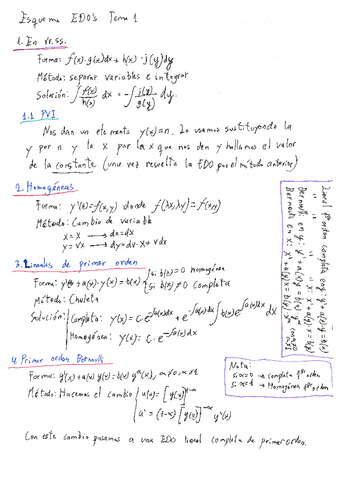 Esquema EDO's Tema 1
1. En vr.ss.
Forma: f(x)·g(x)dx + h(x)·j(y)dy
Método: separar variables e integrar
Solución: ∫ f(x)/h(x) dx = -∫ j(y)/g(y) dy.
1.1 PVI
Nos dan un elemento y(x)=n. Lo usamos sustituyendo la
y por n y la x por la x que nos den y hallamos el valor
de la constante (una vez resuelta la EDO por el método anterior)
2. Homogéneas
Forma: y'(x)=f(x,y) donde f(λx,λy)=f(x,y)
Método: Cambio de variable
x=x → dx=dx
y=vx → dy=dv·x+vdx
3. Lineales de primer orden
Forma: y'(x)+a(x)·y(x)=b(x) { si b(x)=0 homogénea
si b(x)≠0 completa
Método: Chuleta
Solución: Completa: y(x)=c·e^-∫a(x)dx + e^-∫a(x)dx ∫b(x)e^∫a(x)dx dx
Homogénea: y(x)=c·e^-∫a(x)dx
4. Primer orden Bernoulli
Forma: y'(x)+a(x)y(x)=b(x)y^α(x), α≠0, α≠1
Método: Hacemos el cambio u(x)=[y(x)]^1-α
u'=(1-α)[y(x)]^-α y'(x)
Con este cambio pasamos a una EDO lineal completa de primer orden.
Lineal 1º orden completa en y: y'+a(x)·y=b(x)
" " " " x: x'+a(y)·x=b(y)
Bernoulli en y: y'+a(x)y=b(x)·y^α
Bernoulli en x: x'+a(y)x=b(y)·x^α
Nota:
si α=0 → completa 1er orden
si α=1 → Homogénea 1er orden